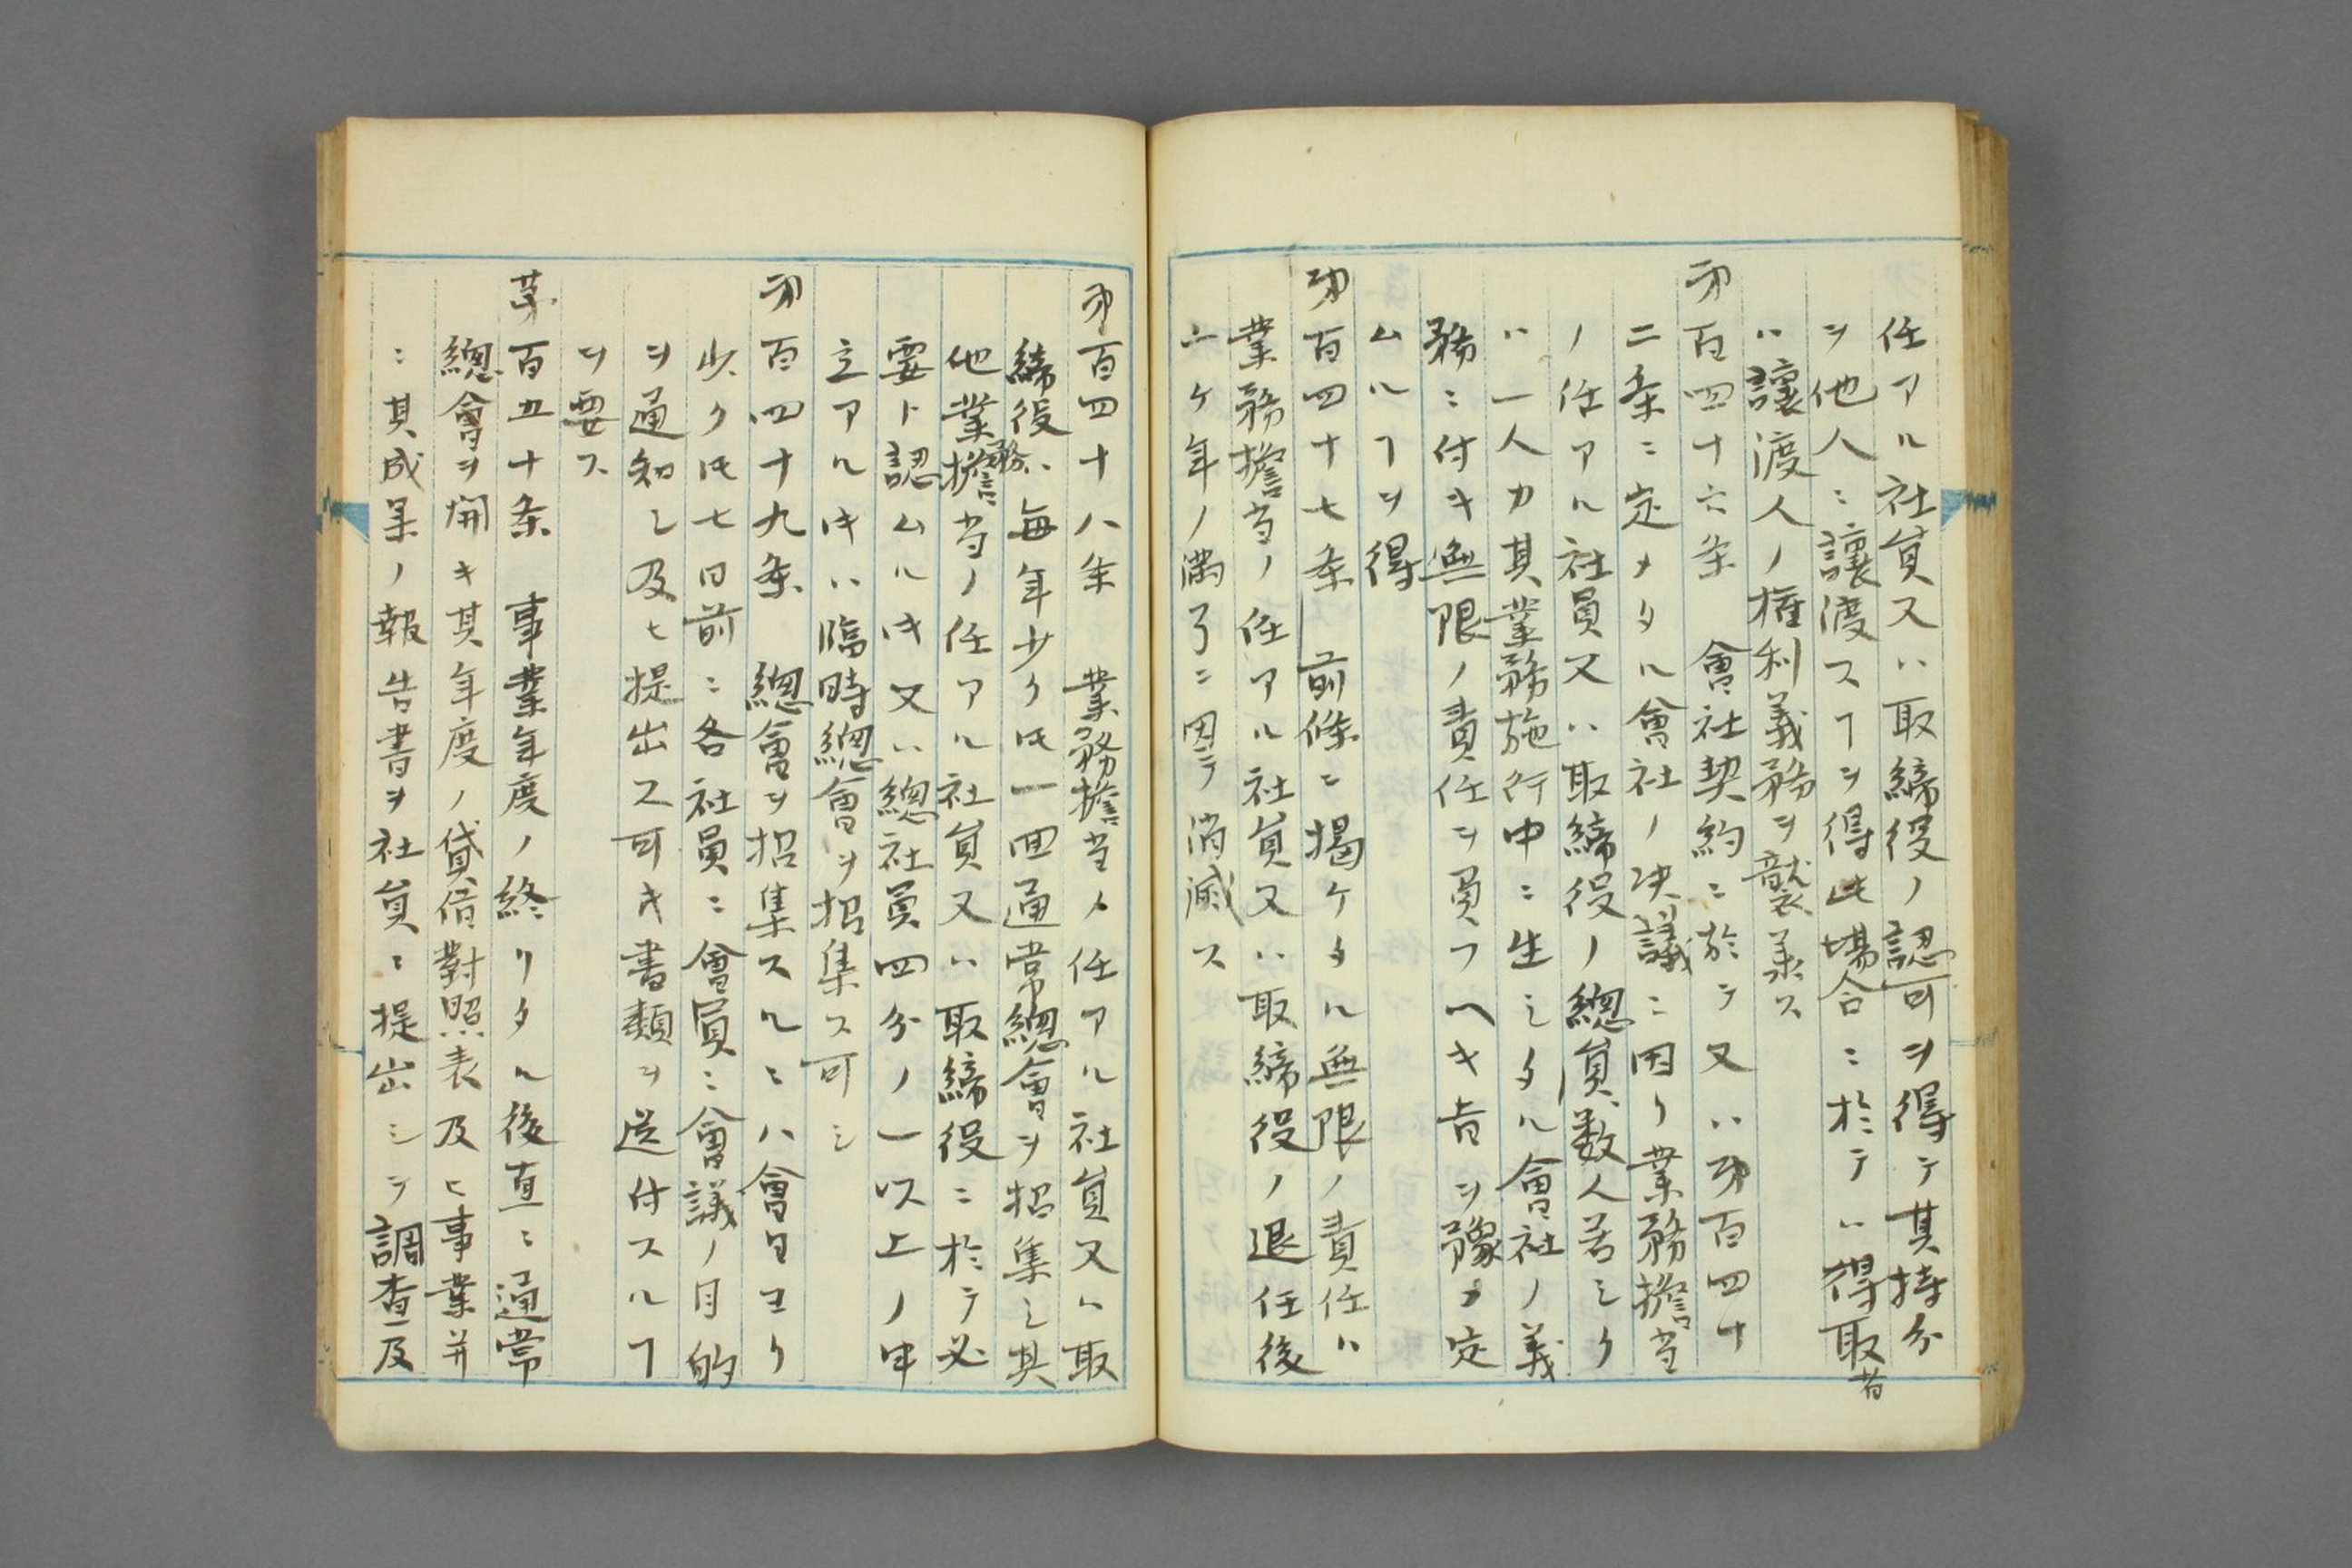 任アル社員又ハ取締役ノ認可ヲ得テ其持分
ヲ他人ニ讓渡スヿヲ得此塲合ニ於テハ得取者
ハ讓渡人ノ權利義務ヲ襲承ス
第百四十六条　會社契約ニ於テ又ハ第百四十
二条ニ定メタル會社ノ决議ニ因リ業務擔当
ノ任アル社員又ハ取締役ノ總員数人若シク
ハ一人カ其業務施行中ニ生シタル會社ノ義
務ニ付キ無限ノ責任ヲ負フヘキ旨ヲ豫メ定
ムルヿヲ得
第百四十七条　前條ニ揭ケタル無限ノ責任ハ
業務擔当ノ任アル社員又ハ取締役ノ退任後
二ケ年ノ満了ニ因テ消滅ス
第百四十八条　業務擔当ノ任アル社員又ハ取
締役ハ毎年少クモ一回通常總會ヲ招集シ其
他業務擔当ノ任アル社員又ハ取締役ニ於テ必
要ト認ムル时又ハ總社員四分ノ一以上ノ申
立アル时ハ臨時總會ヲ招集ス可シ
第百四十九条　總會ヲ招集スルニハ會日ヨリ
少クモ七日前ニ各社員ニ會員ニ會議ノ目的
ヲ通知シ及ヒ提出ス可キ書類ヲ送付スルヿ
ヲ要ス
第百五十条　事業年度ノ終リタル後直ニ通常
總會ヲ開キ其年度ノ貸借對照表及ヒ事業并
ニ其成果ノ報告書ヲ社員ニ提出シテ調査及